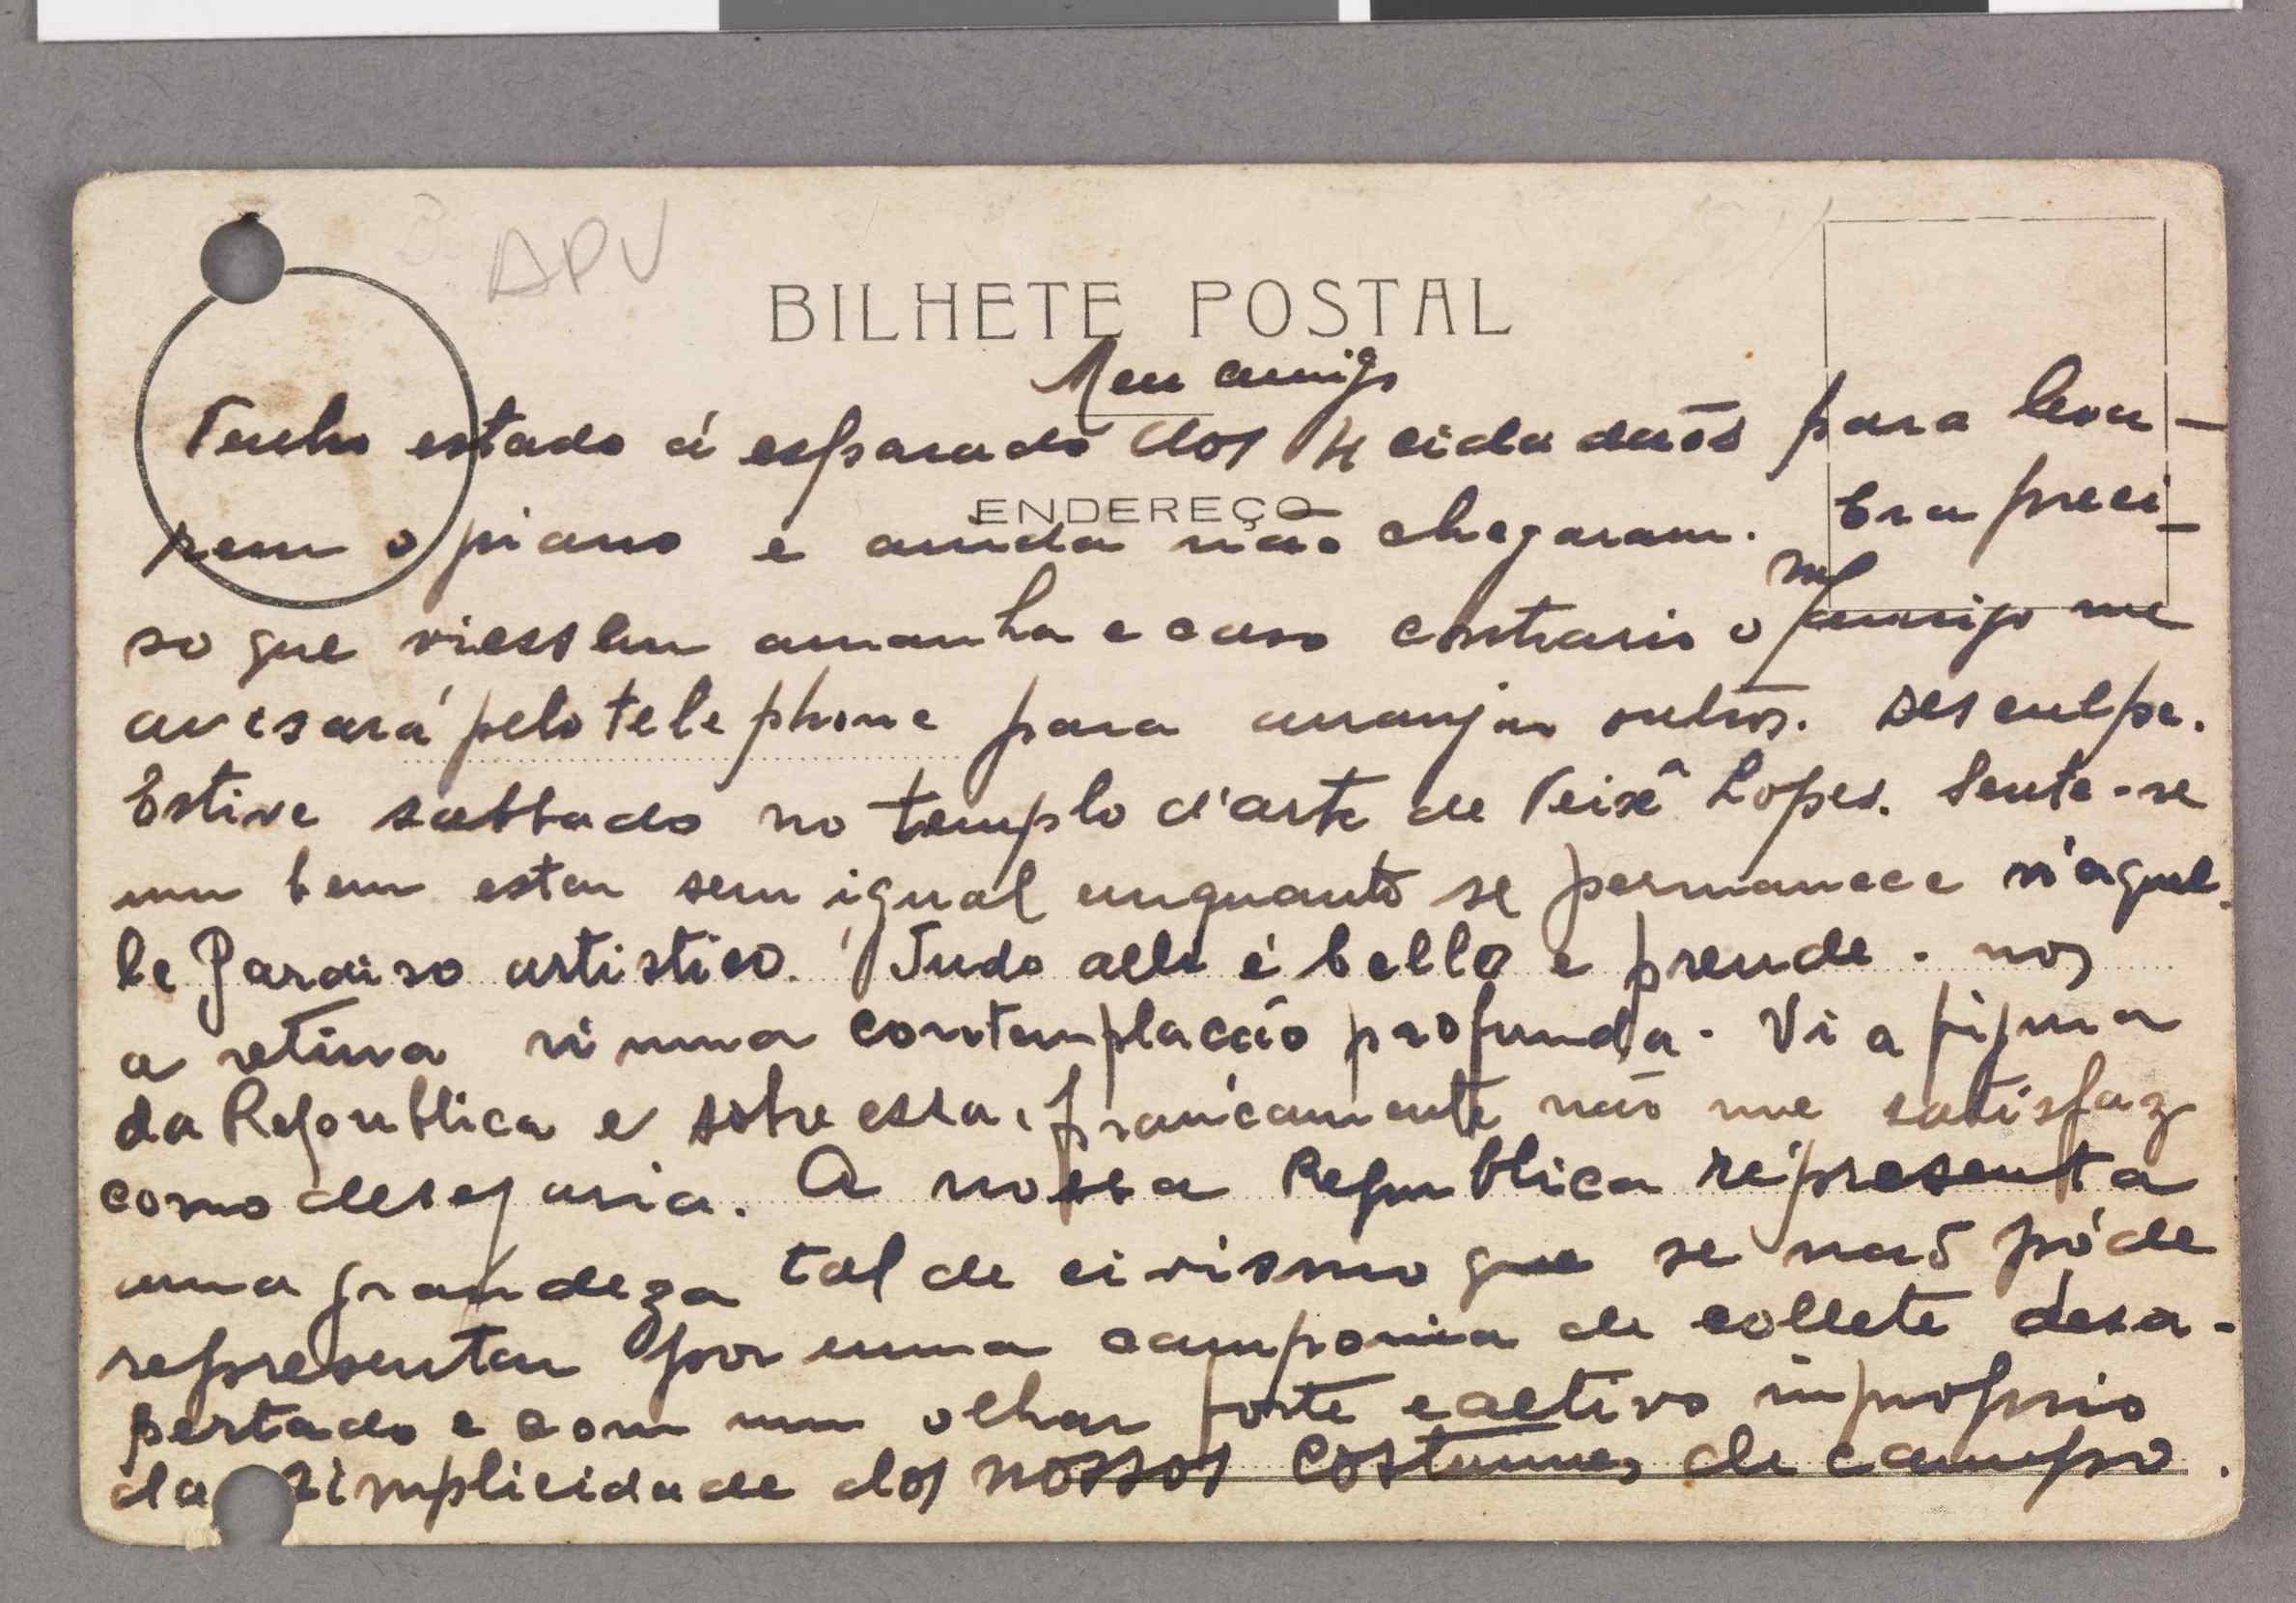 APV
BILHETE POSTAL
Meu amigo
Tenho estado á esparado dos 4 cidadaõs para leva-
rem o piano e ainda não chegaram. Era preci-
ENDEREÇO
so que viessem amanha e caso contrario o amigo me
avisará pelo telephone para arranjar outros. Desculpe.
Estive sabbado no templo d'arte de Teixª Lopes. Sente-se
um bem estar sem igual enquanto se permanece n'aquel-
le Paraiso artistico. Tudo alli é bello e prende-nos
a retina n'uma contemplacão profunda. Vi a figura
da Republica e sobre essa, francamente não me satisfaz
como desejaria. A nossa Republica representa
uma grandeza tal de civismo que se naõ póde
representar por uma camponia de collete desa-
pertado e com um olhar forte e altivo improprio
da simplicidade dos nossos costumes de campo.